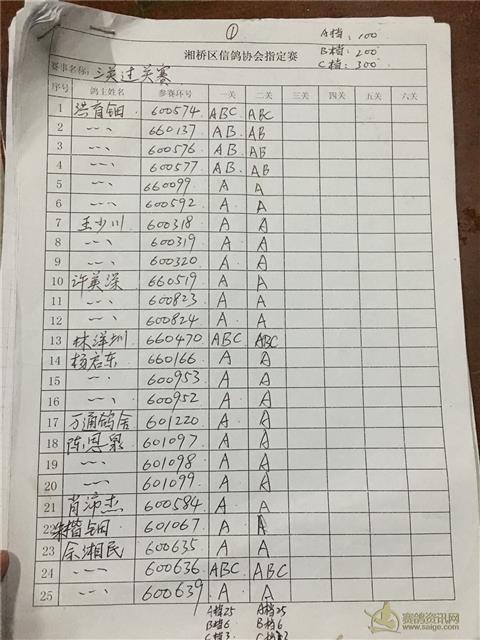 ①
A档：100
湘桥区信鸽协会指定赛
B档：200
赛事名称：三关过关赛
C档：300
序号 鸽主姓名 参赛环号 一关 二关 三关 四关 五关 六关
1 洪育钿 600574 ABC ABC
2 〃 660137 AB AB
3 〃 600576 AB AB
4 〃 600577 AB AB
5 〃 660099 A A
6 〃 600592 A A
7 王少川 600318 A A
8 〃 600319 A A
9 〃 600320 A A
10 许英深 660519 A A
11 〃 600823 A A
12 〃 600824 A A
13 林洋圳 660470 ABC ABC
14 杨启东 660166 A A
15 〃 600953 A A
16 〃 600952 A A
17 万涌鸽舍 601220 A A
18 陈恩泉 601097 A A
19 〃 601098 A A
20 〃 601099 A A
21 肖沛杰 600584 A A
22 朱楷钿 601067 A A
23 余湘民 600635 A A
24 〃 600636 ABC ABC
25 〃 600639 A A
A档25 A档25
B档6 B档6
C档3 C档
赛鸽资讯网
www.saige.com